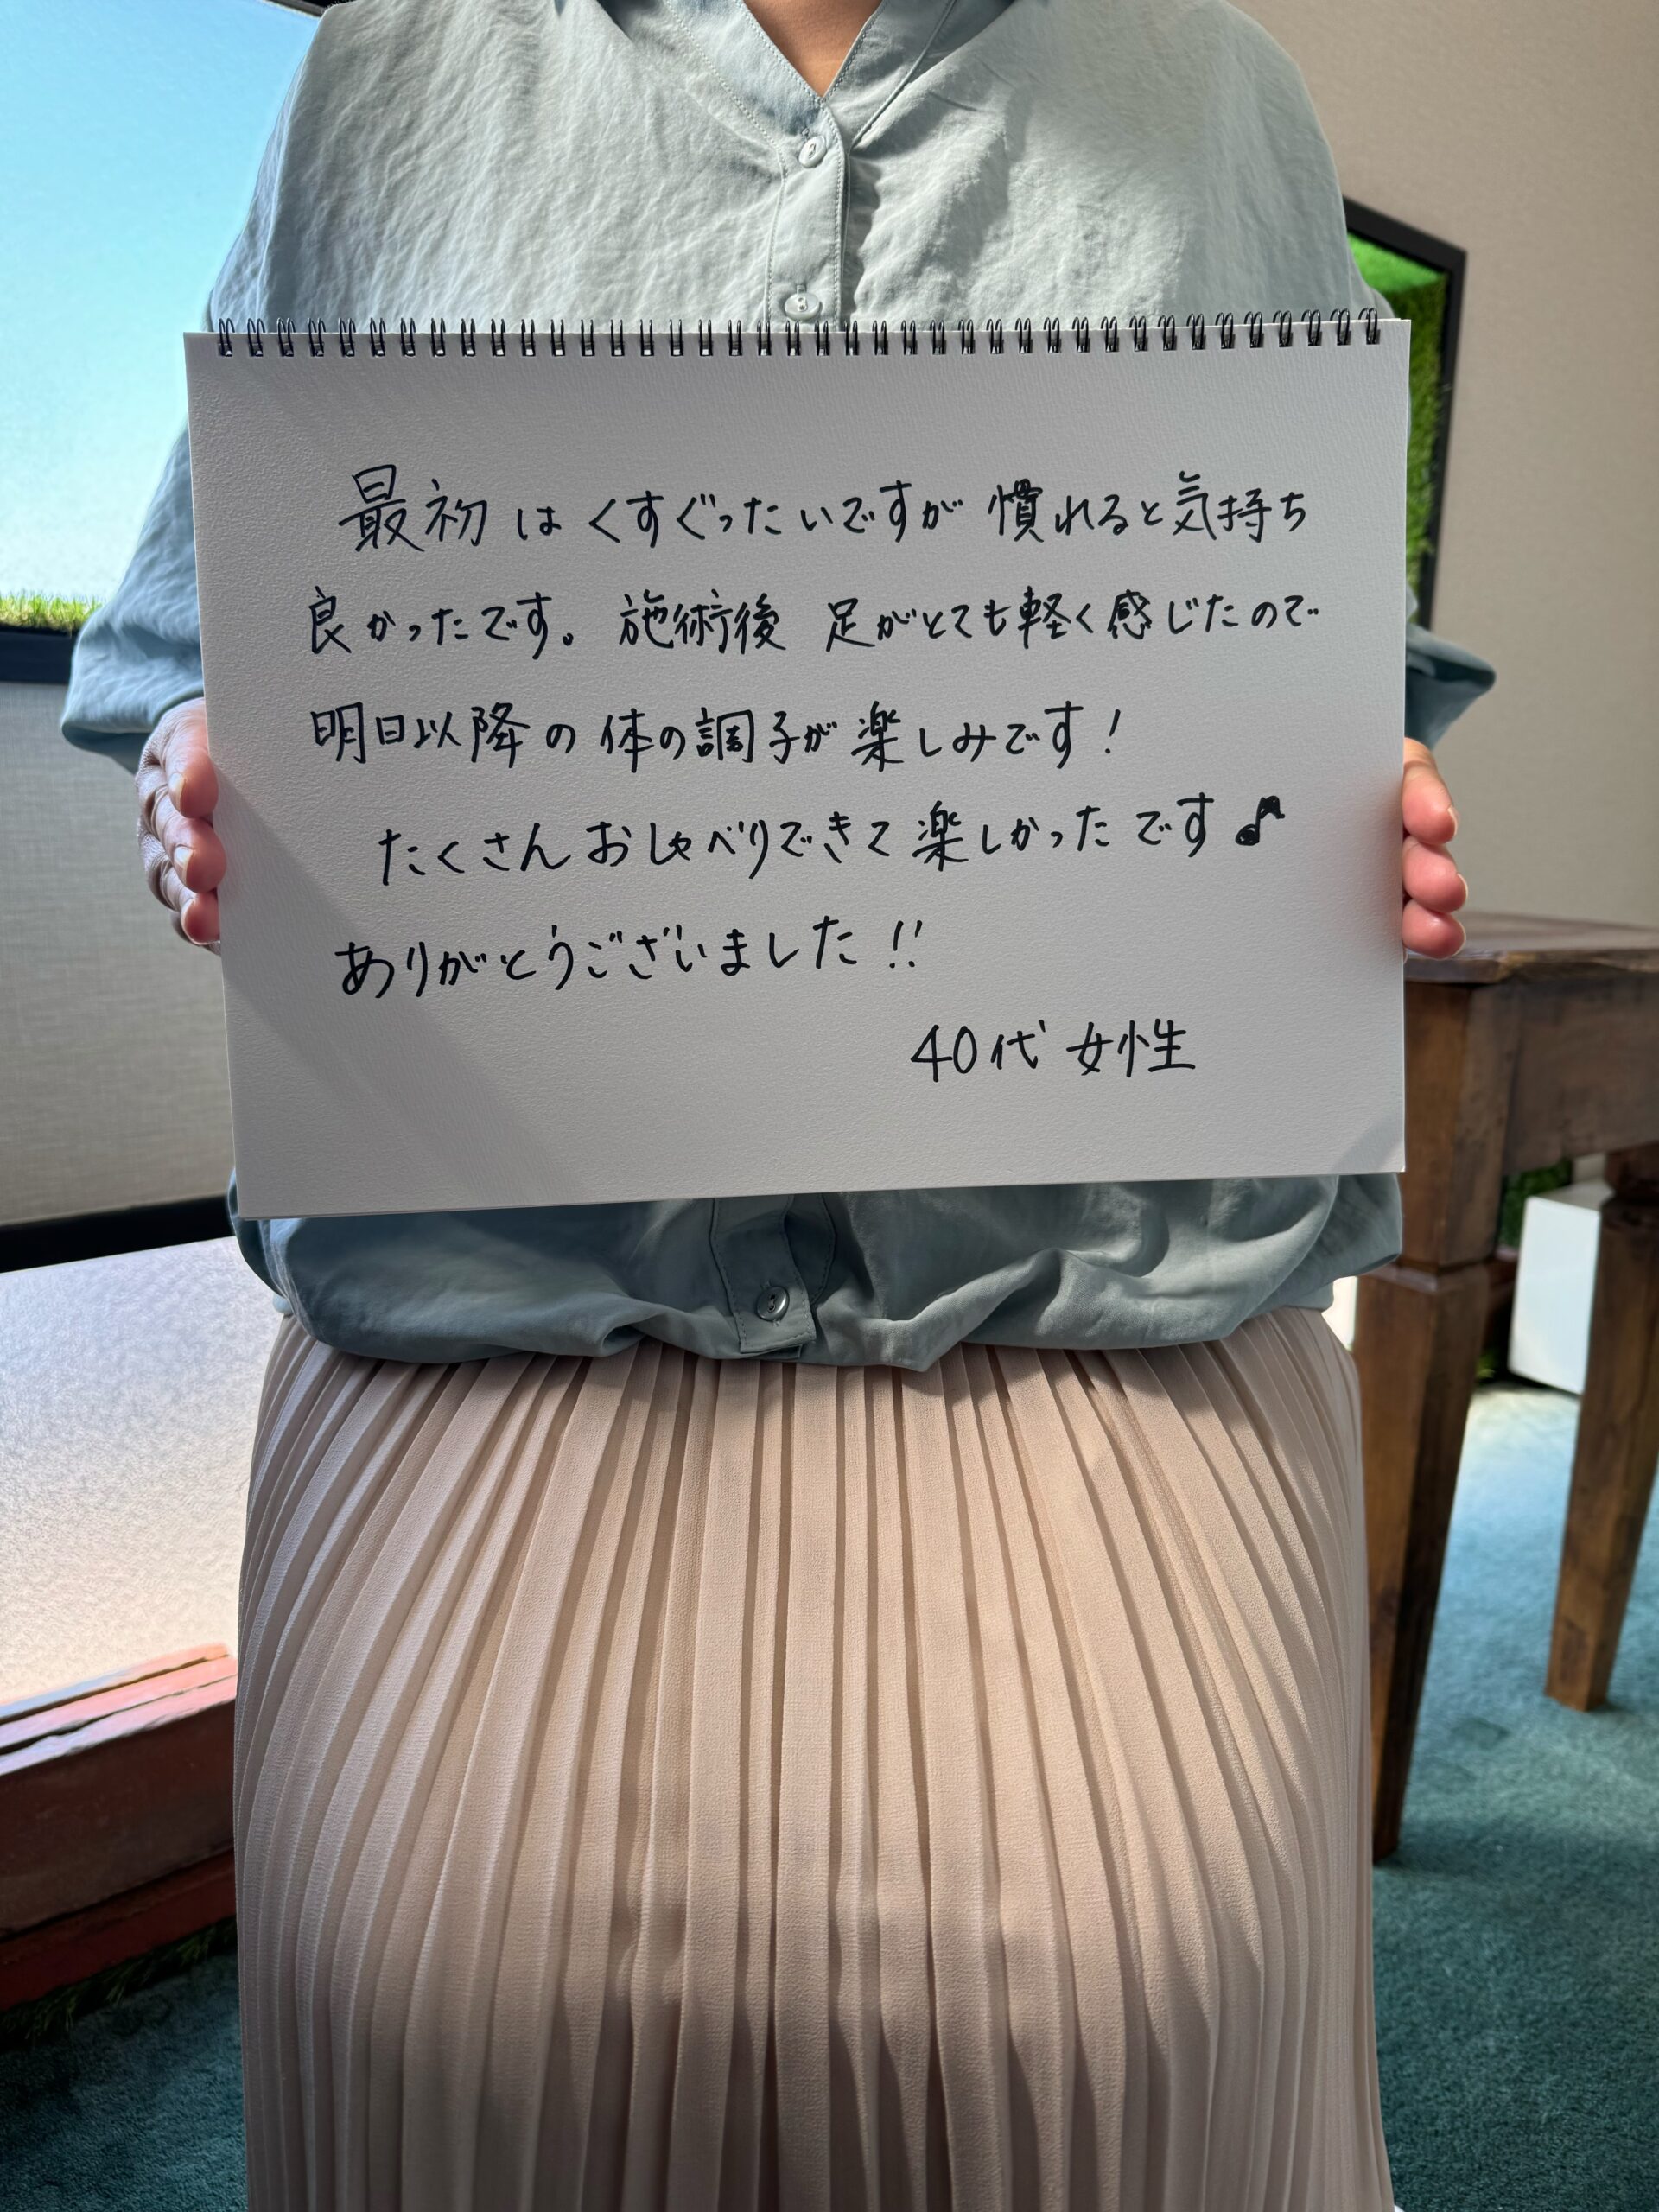 最初はくすぐったいですが慣れると気持ち
良かったです。施術後 足がとても軽く感じたので
明日以降の体の調子が楽しみです!
たくさんおしゃべりできて楽しかったです♪
ありがとうございました!!
40代 女性